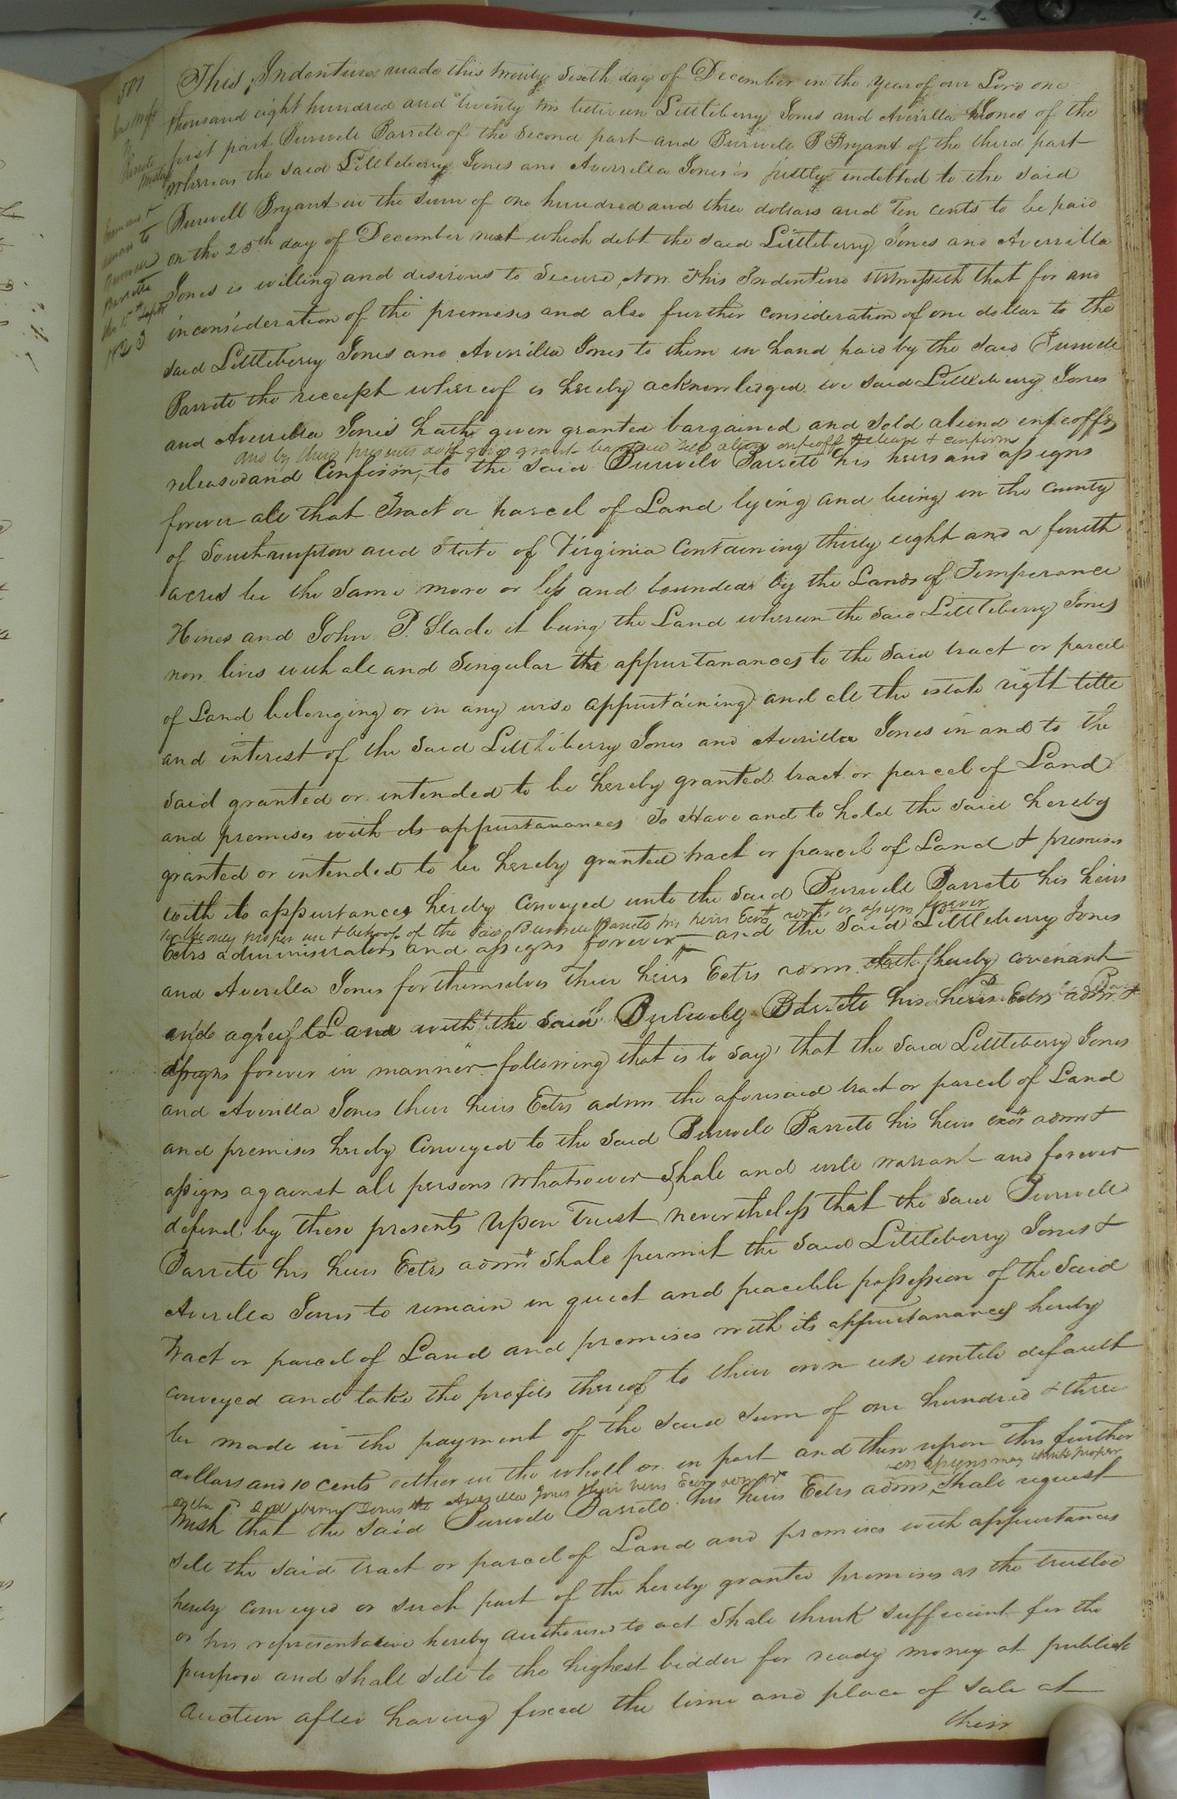 507
This Indenture made this twenty Sixth day of December in the year of our Lord one
thousand eight hundred and twenty two between Littleberry Jones and Averilla Jones of the
first part Burwell Barrett of the Second part and Burwell B Bryant of the third part
Whereas the said Littleberry Jones and Averrilla Jones is justly indebted to the said
Burwell Bryant in the sum of one hundred and three dollars and Ten cents to be paid
on the 25th day of December next which debt the said Littleberry Jones and Averrilla
Jones is willing and desirous to Secure, Now This Indenture witnesseth that for and
inconsideration of the premises and also further consideration of one dollar to the
said Littleberry Jones and Averrilla Jones to them in hand paid by the Said Burwell
Barrett the receipt whereof is hereby acknowledged we said Littleberry Jones
and Averrilla Jones hath given granted bargained and Sold aliend infeoffd
and by these presents doth give grant bargain sell alien enfeoff release & confirm
released and Confirm, to the Said Burwell Barrett his heirs and assigns
forever all that Tract or parcel of Land lying and being in the County
of Southampton and State of Virginia Containing thirty eight and a fourth
acres be the Same more or less and bounded by the Lands of Temperance
Hines and John P. Slade it being the Land whereon the said Littleberry Jones
now lives with all and Singular the appurtanances to the Said tract or parcel
of Land belonging or in any wise appurtaining and all the estate right title
and interest of the Said Littleberry Jones and Averilla Jones in and to the
said granted or intended to be hereby granted tract or parcel of Land
and premises with its appurtanances To Have and to hold the Said hereby
granted or intended to be hereby granted tract or parcel of Land & premises
with its appurtances hereby Conveyed unto the Said Burwell Barrett his heirs
to the only proper use & behoof of the said Burwell Barrett his heirs Ectrs admrs or assigns forever
Ectrs administrators and assigns forever and the Said Littleberry Jones
and Averilla Jones for themselves their heirs Ectrs adms doth hereby covenant
and agree to and with the Said Burwell Barrett his heirs Ectrs admr &
assigns forever in manner following that is to Say, that the Said Littleberry Jones
and Averilla Jones their heirs Ectrs adms the aforesaid tract or parcel of Land
and premises hereby Conveyed to the Said Burwell Barrett his heirs exors admrs &
assigns against all persons whatsoever Shall and will warrant and forever
defend by these presents Upon Trust nevertheless that the Said Burwell
Barrett his heirs Ectrs admrs Shall permit the Said Littleberry Jones &
Averilla Jones to remain in quiet and peacible possession of the Said
Tract or parcel of Land and premises with its appurtanances hereby
conveyed and take the profits thereof to their own use untill default
be made in the payment of the Said Sum of one hundred & three
dollars and 10 cents either in the wholl or in part and then upon This further
or assigns may think proper
Littleberry Jones Averrilla Jones their heirs Ectrs admrs
Trust that the Said Burwell Barrett his heirs Ectrs adms, Shall request
Sell the Said tract or parcel of Land and premises with appurtances
hereby conveyed or such part of the hereby granted premises as the trustee
or his representative hereby authorised to act Shall think sufficient for the
purpose and shall Sell to the highest bidder for ready money at publick
auction after having fixed the time and place of Sale at
their